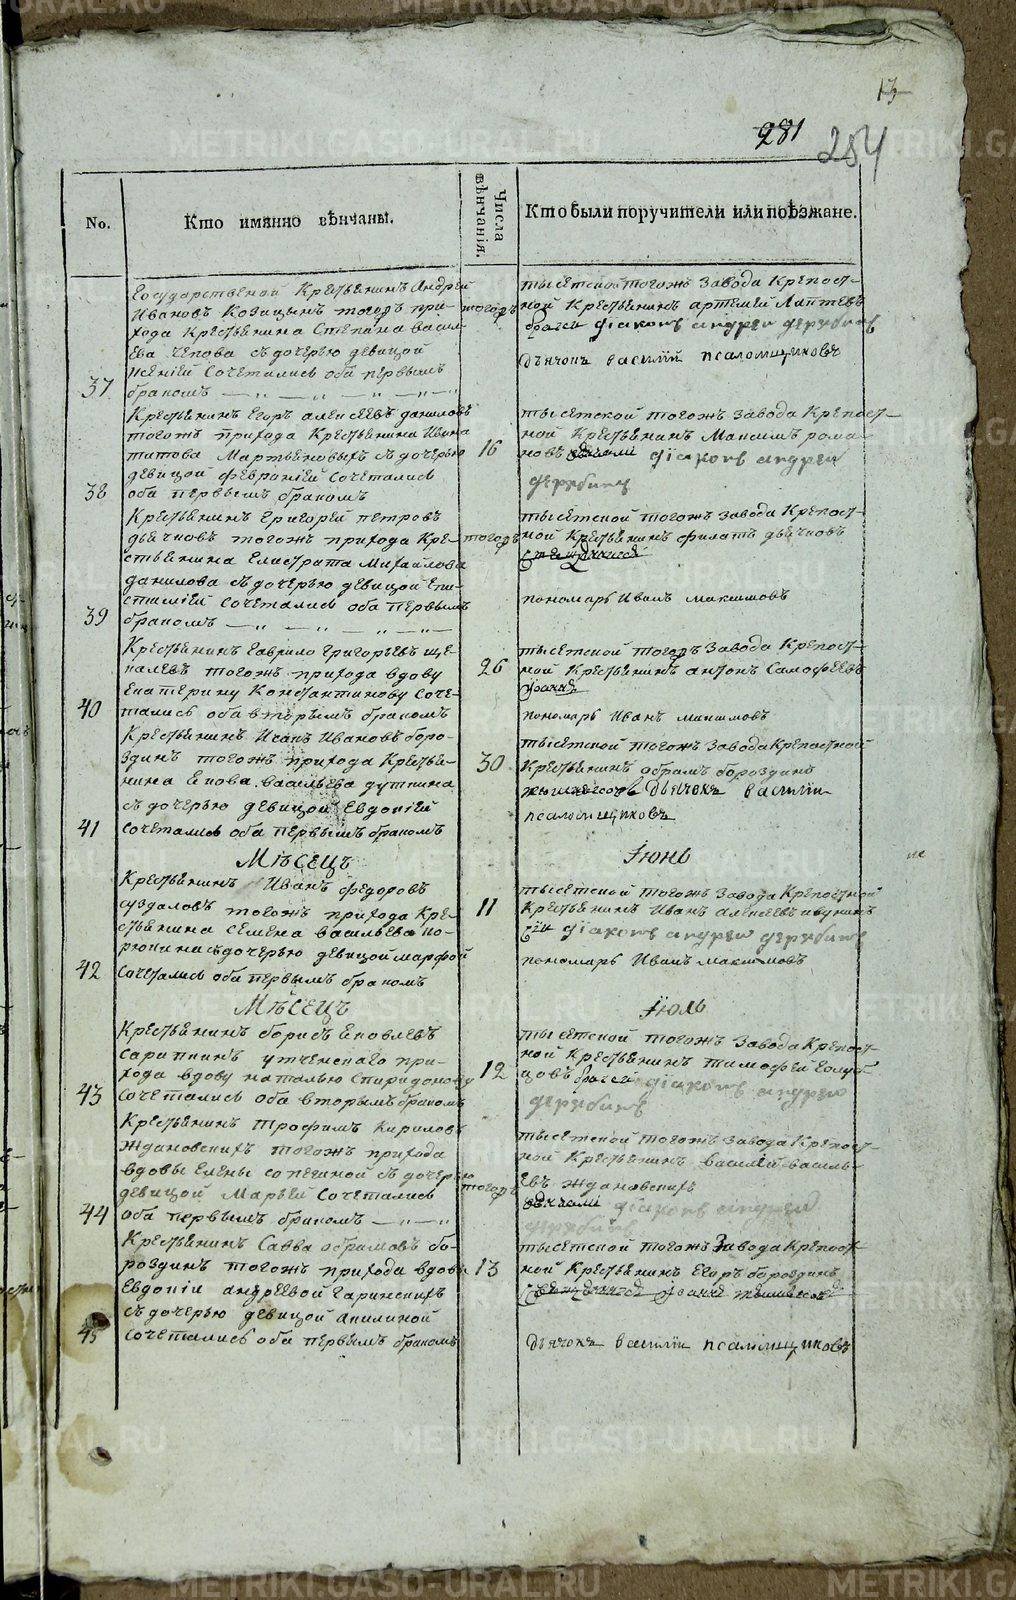 13
281 254
No.
Кто имянно вѣнчаны.
Числа вѣнчанія.
Кто были поручители или поѣзжане.
Государственой Крестьянинъ Андрей
Ивановъ Козицынъ тогожъ при-
хода Крестьянина Степана Васи-
ева Чепова съ дочерью девицой
Ксенией Сочетались оба первымъ
37 бракомъ
тогожъ
тысетской тогожъ Завода Крепост-
ной Крестьянинъ Артемей Лаптевъ
діаконъ андреи
Дьячокъ василiй псаломщиковъ
Крестьянинъ Егоръ алексеевъ даниловъ
тогожъ прихода Крестьянина Ивана
титова Мартьяновыхъ съ дочерью
девицой февронiей Сочетались
38 оба первымъ бракомъ
16
тысетской тогожъ Завода Крепост-
ной Крестьянинъ Максимъ рома-
новъ діаконъ андреи
Крестьянинъ Григорей петровъ
дьячковъ тогожъ прихода Кре-
стьянина Елистрата Михаилова
данилова съ дочерью девицой Епи-
стимiей Сочетались оба первымъ
39 бракомъ
тогожъ
тысетской тогожъ Завода Крепост-
ной Крестьянинъ филатъ дьячковъ
пономарь Иванъ максимовъ
Крестьянинъ Гаврило Григорьевъ ще-
калевъ тогожъ прихода вдову
Екатерину Константинову Соче-
40 тались оба вторымъ бракомъ
26
тысетской тогожъ Завода Крепост-
ной Крестьянинъ антонъ Самофеевъ
пономарь Иванъ максимовъ
Крестьянинъ Исакъ Ивановъ боро-
здинъ тогожъ прихода Крестья-
нина Якова васильева дуткина
съ дочерью девицой Евдокiей
41 сочетались оба первымъ бракомъ
30
тысетской тогожъ Завода Крепостной
Крестьянинъ абрамъ бороздинъ
Дьячокъ василiи
псаломщиковъ
Мѣсецъ Iюнь
Крестьянинъ Иванъ федоровъ
суздаловъ тогожъ прихода Кре-
стьянина семена васильева ко-
рюкина съ дочерью девицой марфой
42 Сочетались оба первымъ бракомъ
11
тысетской тогожъ Завода Крепостной
Крестьянинъ Иванъ алексеевъ
діаконъ андреи
пономарь Иванъ максимовъ
Мѣсецъ Iюль
Крестьянинъ борисъ Яковлевъ
сарапкинъ при-
хода вдову наталью Спиридонову
43 Сочетались оба вторымъ бракомъ
12
тысетской тогожъ Завода Крепост-
ной Крестьянинъ тимофей Голуб-
цовъ діаконъ андреи
Крестьянинъ трофимъ Кириловъ
Ждановскихъ тогожъ прихода
вдовы Елены сопегиной съ дочерью
девицой Марьей Сочетались
44 оба первымъ бракомъ
тогожъ
тысетской тогожъ Завода Крепост-
ной Крестьянинъ василiй василь-
евъ ждановскихъ
діаконъ андреи
Крестьянинъ Савва абрамовъ бо-
роздинъ тогожъ прихода вдовы
Евдокiи андреевой Гаринскихъ
съ дочерью девицой акилиной
45 сочетались оба первымъ бракомъ
13
тысетской тогожъ Завода Крепост-
ной Крестьянинъ Егоръ бороздинъ
Дьячокъ василiи псаломщиковъ